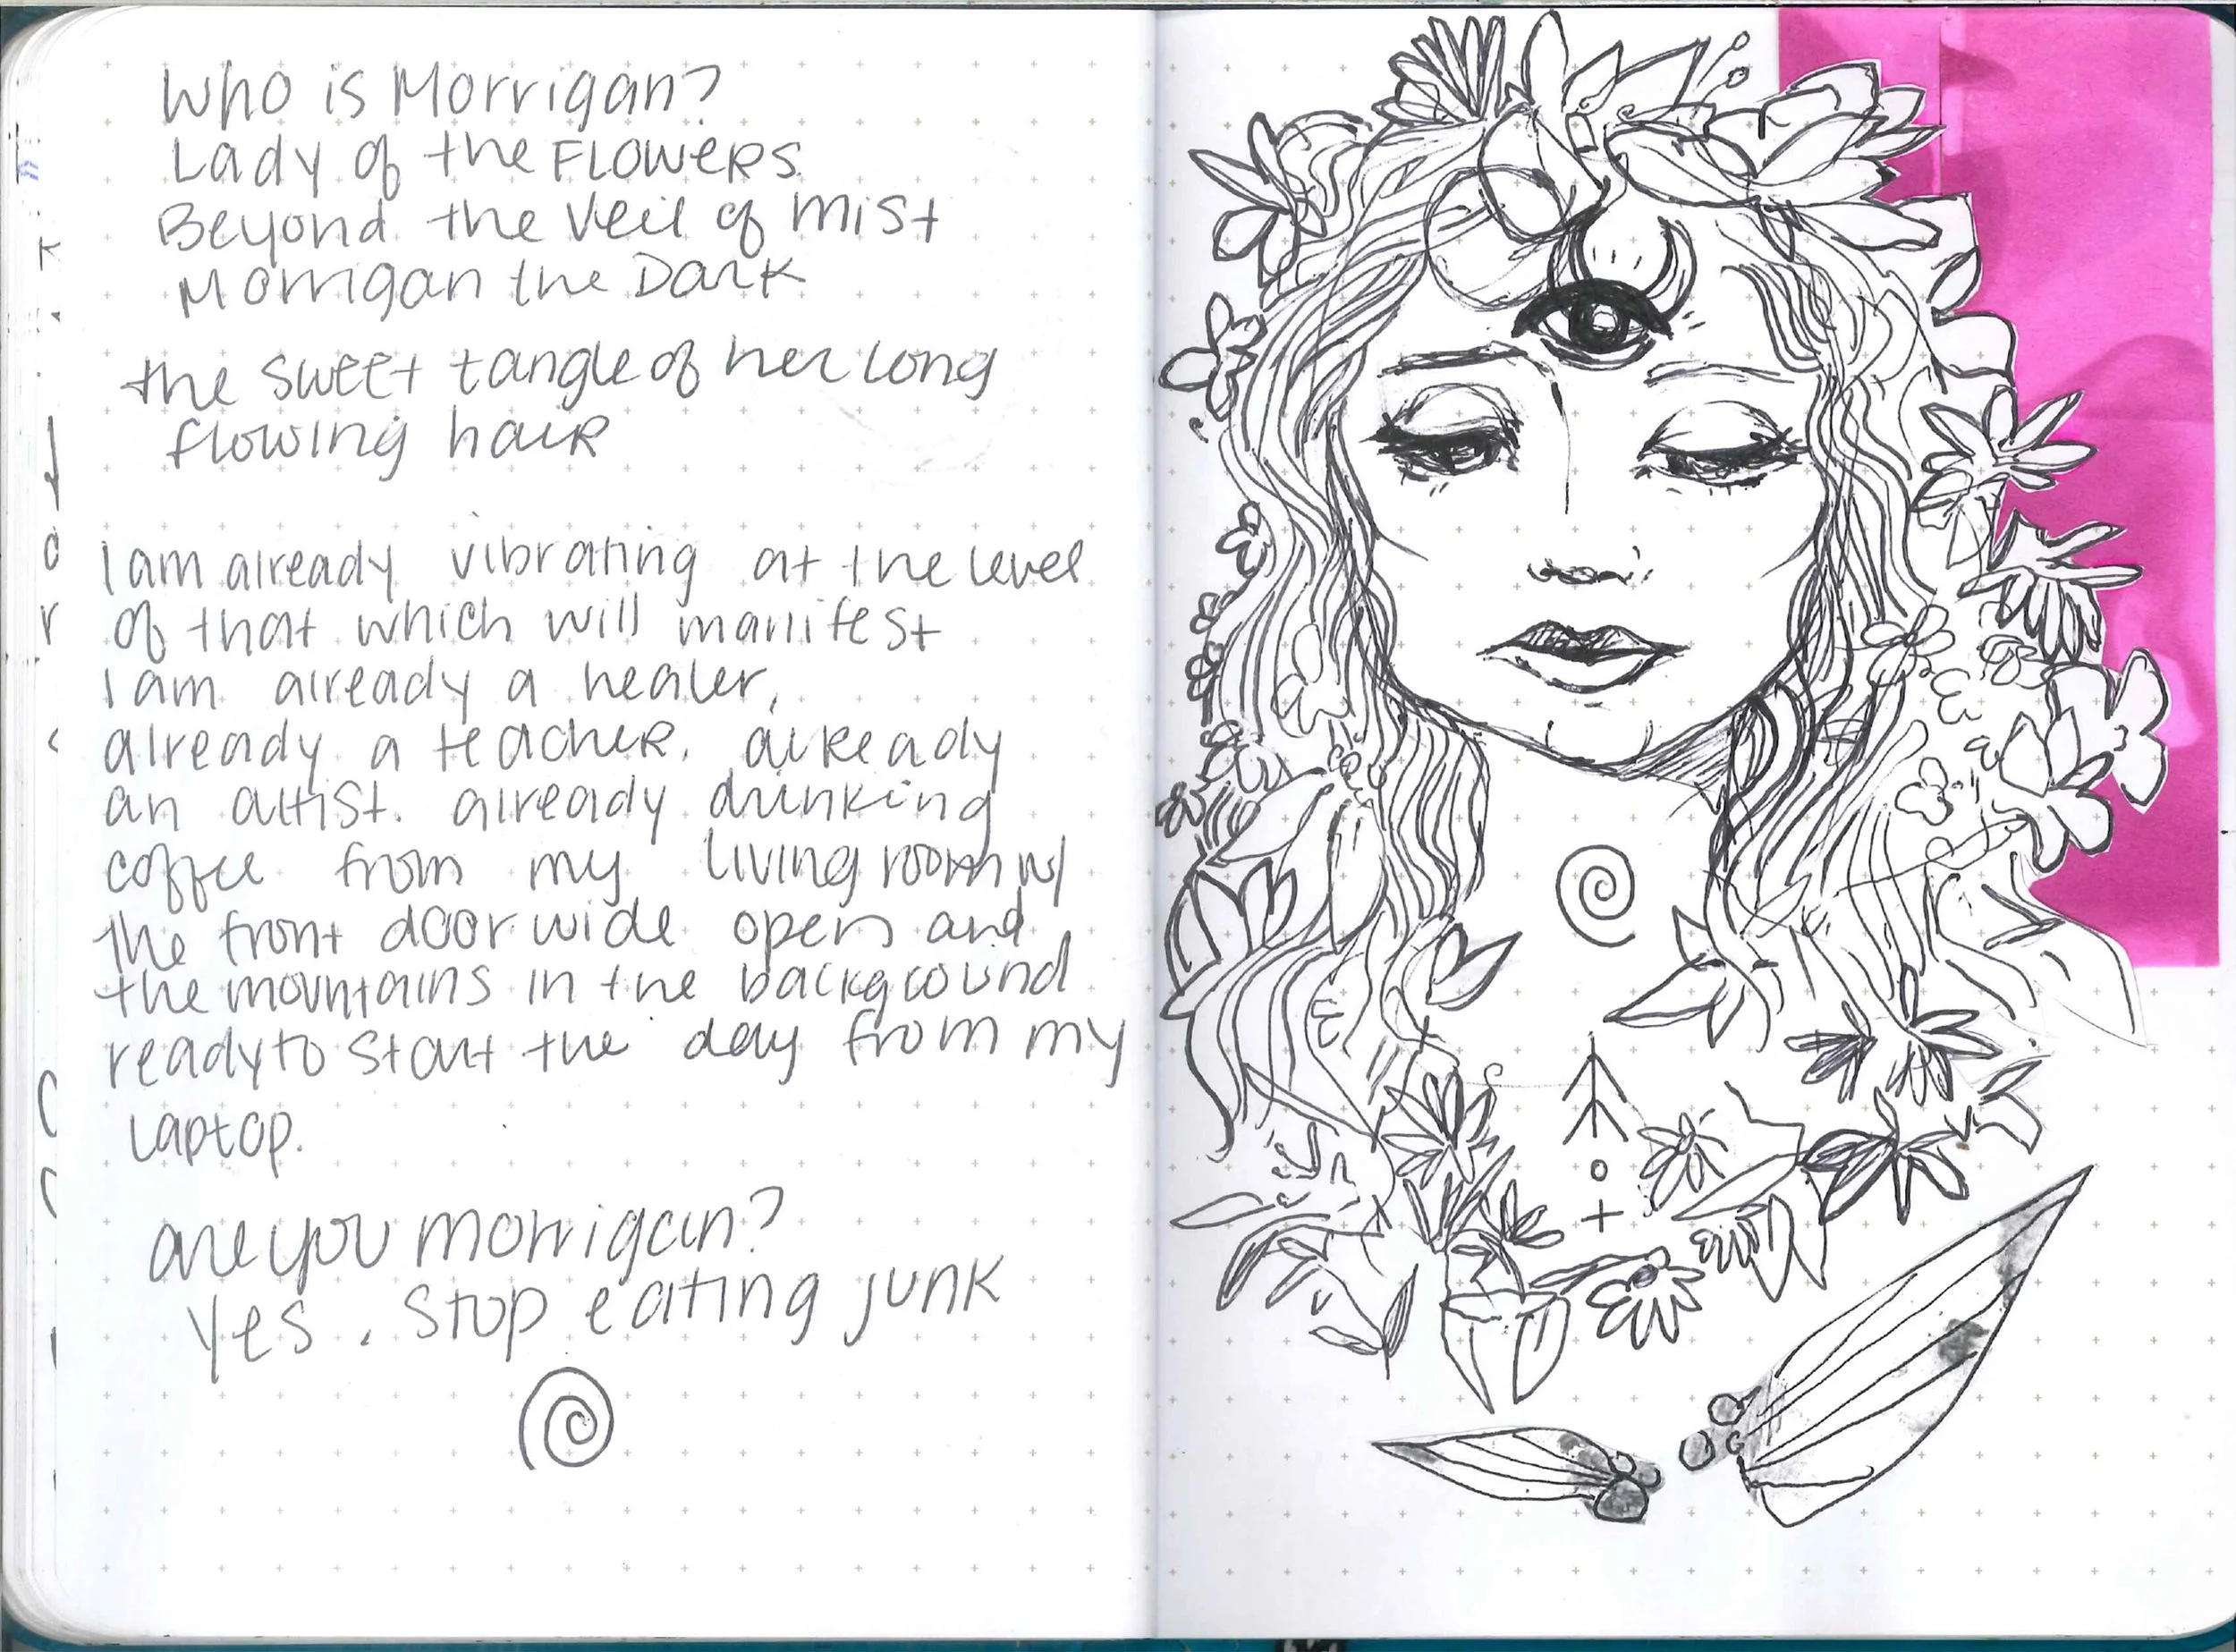 Who is Morrigan?
Lady of the FLOWERS
Beyond the Veil of Mist
Morrigan the Dark
the sweet tangle of her long
flowing hair
I am already vibrating at the level
of that which will manifest
I am already a healer,
already a teacher. already
an artist. already drinking
coffee from my living room w/
the front door wide open and
the mountains in the background
ready to start the day from my
laptop.
are you morrigan?
Yes. Stop eating junk